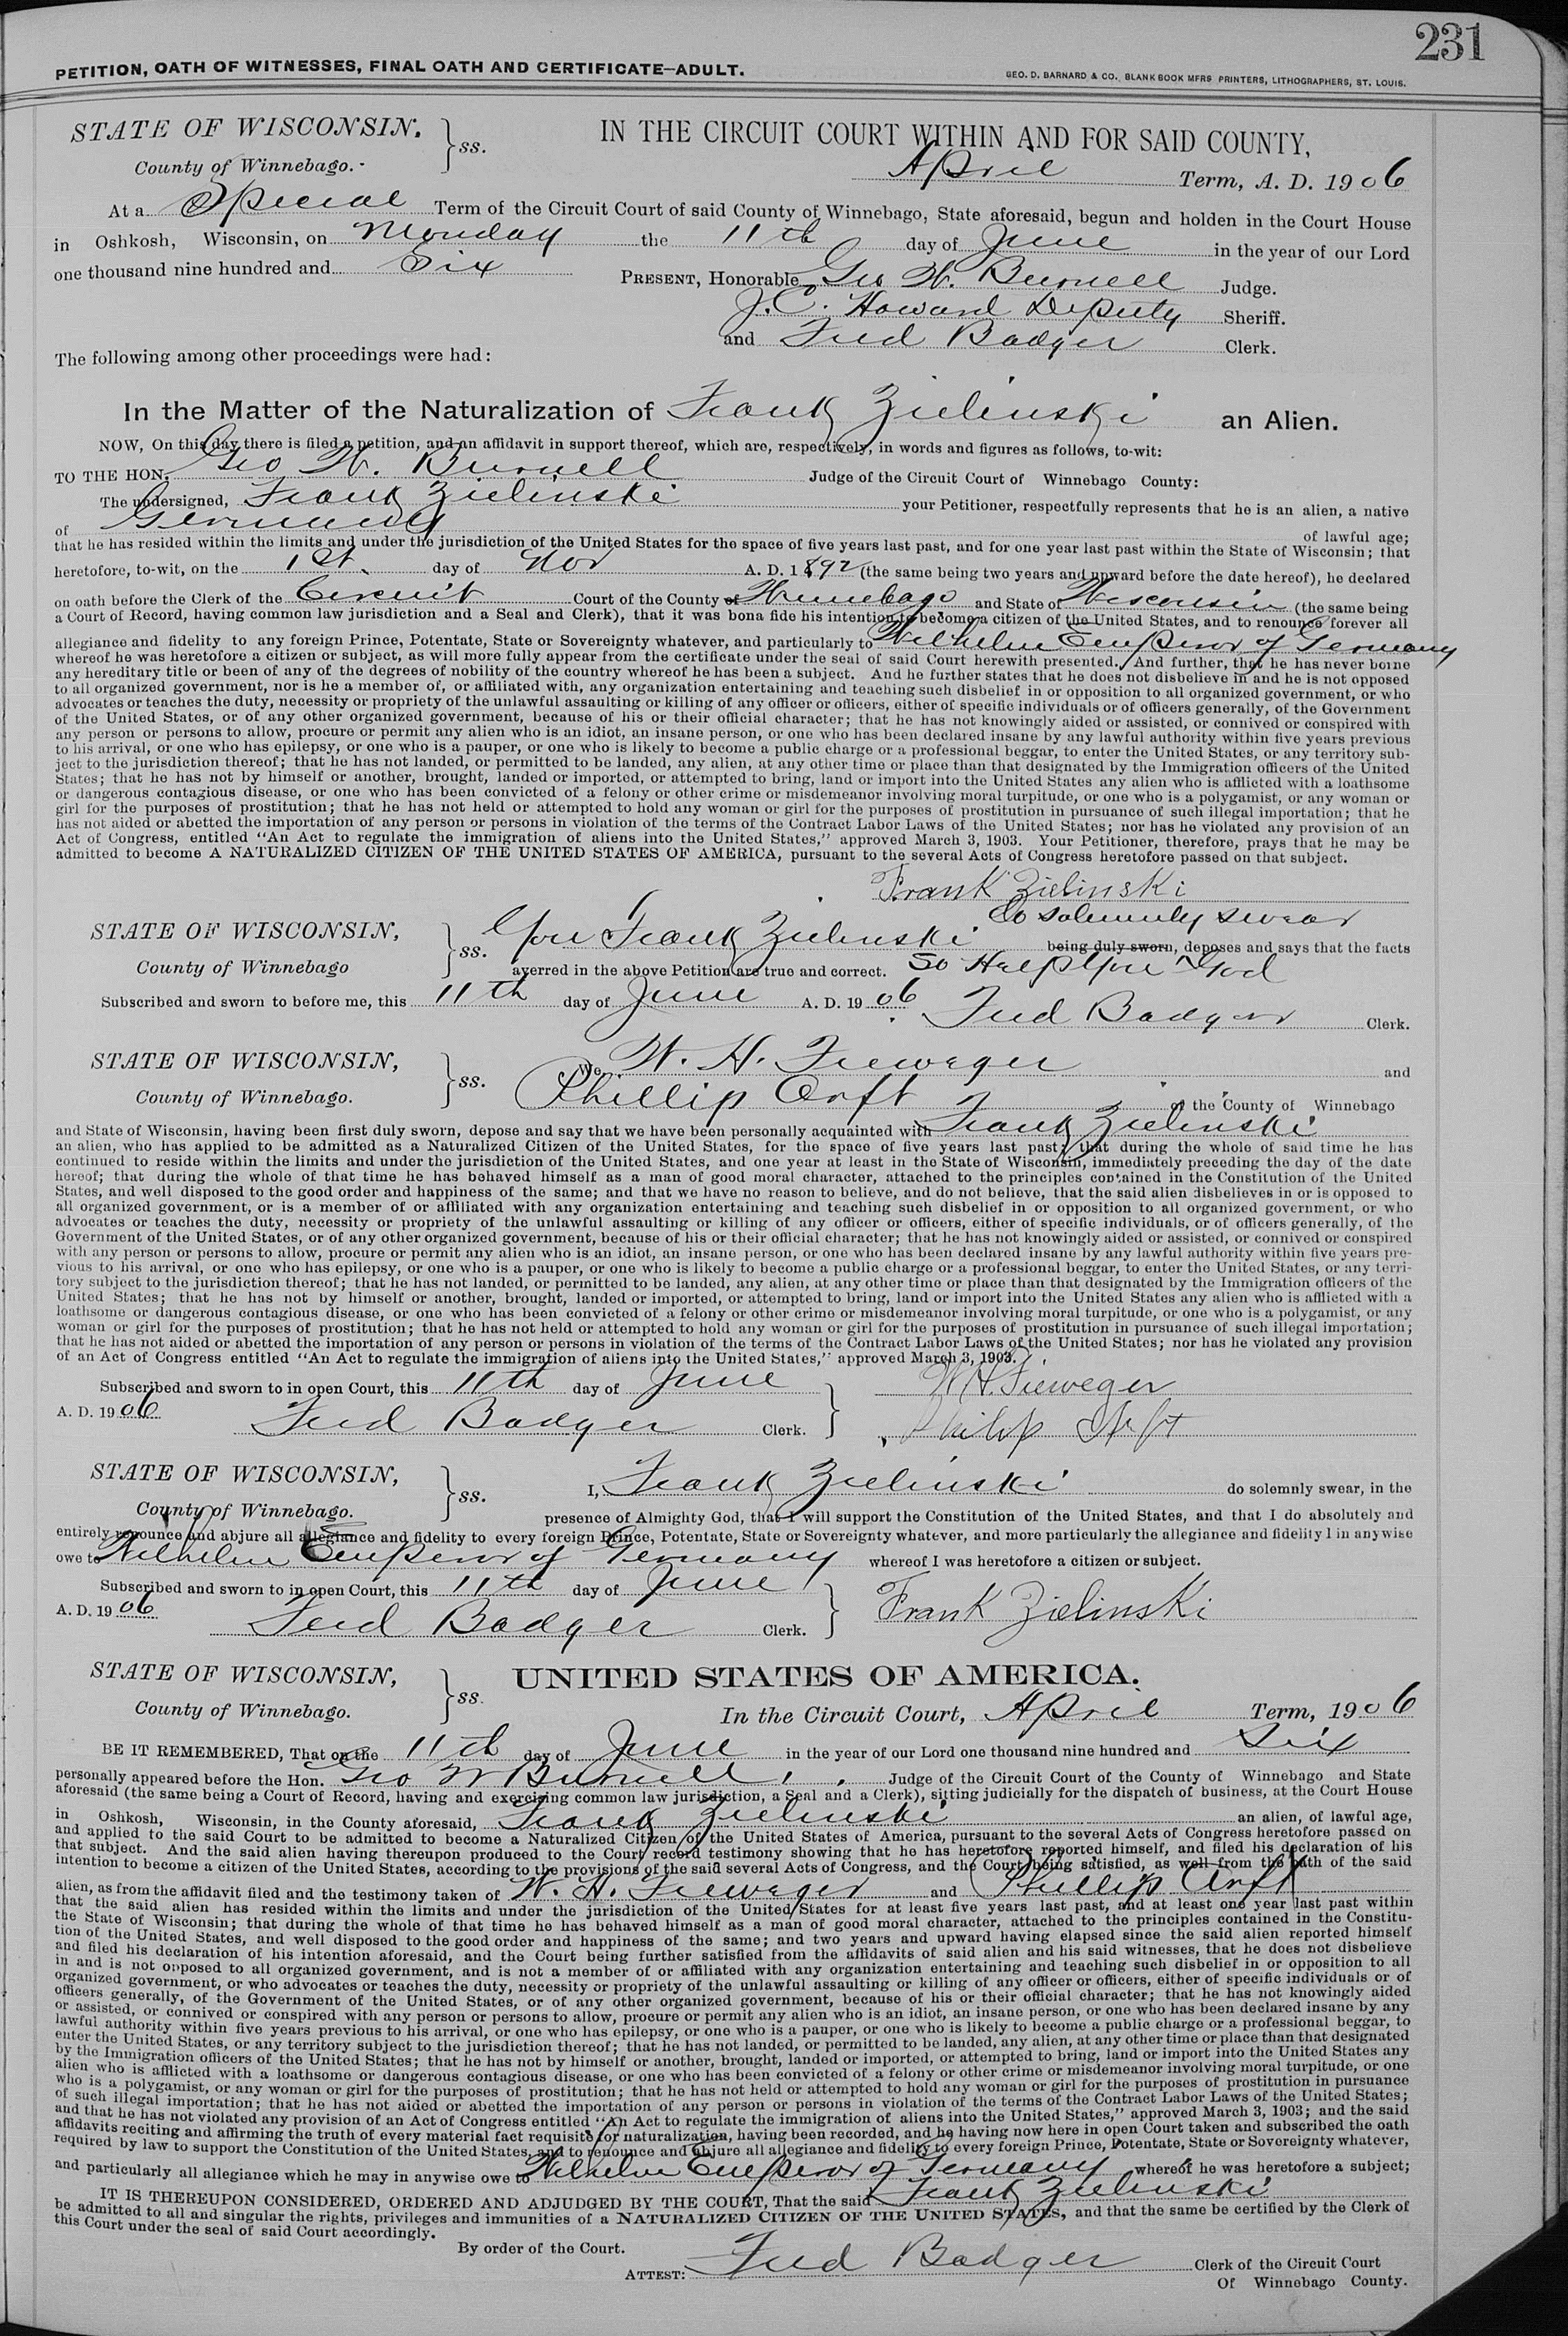 231
PETITION, OATH OF WITNESSES, FINAL OATH AND CERTIFICATE—ADULT.
GEO. D. BARNARD & CO. BLANK BOOK MFRS PRINTERS, LITHOGRAPHERS, ST. LOUIS.
STATE OF WISCONSIN. } ss. IN THE CIRCUIT COURT WITHIN AND FOR SAID COUNTY,
County of Winnebago. April Term, A. D. 1906
At a Special Term of the Circuit Court of said County of Winnebago, State aforesaid, begun and holden in the Court House
in Oshkosh, Wisconsin, on Monday the 11th day of June in the year of our Lord
one thousand nine hundred and Six PRESENT, Honorable Geo W. Burnell Judge.
J. C. Howard Deputy Sheriff.
and Fred Badger Clerk.
The following among other proceedings were had:
In the Matter of the Naturalization of Frank Zielinski an Alien.
NOW, On this day there is filed a petition, and an affidavit in support thereof, which are, respectively, in words and figures as follows, to-wit:
TO THE HON. Geo W. Burnell Judge of the Circuit Court of Winnebago County:
The undersigned, Frank Zielinski your Petitioner, respectfully represents that he is an alien, a native
of Germany of lawful age;
that he has resided within the limits and under the jurisdiction of the United States for the space of five years last past, and for one year last past within the State of Wisconsin; that
heretofore, to-wit, on the 1st. day of Nov A. D. 1892 (the same being two years and upward before the date hereof), he declared
on oath before the Clerk of the Circuit Court of the County of Winnebago and State of Wisconsin (the same being
a Court of Record, having common law jurisdiction and a Seal and Clerk), that it was bona fide his intention to become a citizen of the United States, and to renounce forever all
allegiance and fidelity to any foreign Prince, Potentate, State or Sovereignty whatever, and particularly to Wilhelm Emperor of Germany
whereof he was heretofore a citizen or subject, as will more fully appear from the certificate under the seal of said Court herewith presented. And further, that he has never borne
any hereditary title or been of any of the degrees of nobility of the country whereof he has been a subject. And he further states that he does not disbelieve in and he is not opposed
to all organized government, nor is he a member of, or affiliated with, any organization entertaining and teaching such disbelief in or opposition to all organized government, or who
advocates or teaches the duty, necessity or propriety of the unlawful assaulting or killing of any officer or officers, either of specific individuals or of officers generally, of the Government
of the United States, or of any other organized government, because of his or their official character; that he has not knowingly aided or assisted, or connived or conspired with
any person or persons to allow, procure or permit any alien who is an idiot, an insane person, or one who has been declared insane by any lawful authority within five years previous
to his arrival, or one who has epilepsy, or one who is a pauper, or one who is likely to become a public charge or a professional beggar, to enter the United States, or any territory sub-
ject to the jurisdiction thereof; that he has not landed, or permitted to be landed, any alien, at any other time or place than that designated by the Immigration officers of the United
States; that he has not by himself or another, brought, landed or imported, or attempted to bring, land or import into the United States any alien who is afflicted with a loathsome
or dangerous contagious disease, or one who has been convicted of a felony or other crime or misdemeanor involving moral turpitude, or one who is a polygamist, or any woman or
girl for the purposes of prostitution; that he has not held or attempted to hold any woman or girl for the purposes of prostitution in pursuance of such illegal importation; that he
has not aided or abetted the importation of any person or persons in violation of the terms of the Contract Labor Laws of the United States; nor has he violated any provision of an
Act of Congress, entitled "An Act to regulate the immigration of aliens into the United States," approved March 3, 1903. Your Petitioner, therefore, prays that he may be
admitted to become A NATURALIZED CITIZEN OF THE UNITED STATES OF AMERICA, pursuant to the several Acts of Congress heretofore passed on that subject.
Frank Zielinski
do solemnly swear
STATE OF WISCONSIN, } ss. You Frank Zielinski being duly sworn, deposes and says that the facts
County of Winnebago averred in the above Petition are true and correct. So Help You God
Subscribed and sworn to before me, this 11th day of June A. D. 1906
Fred Badger Clerk.
STATE OF WISCONSIN, } ss. We, W. H. Fieweger and
County of Winnebago. Phillip Orft of the County of Winnebago
and State of Wisconsin, having been first duly sworn, depose and say that we have been personally acquainted with Frank Zielinski
an alien, who has applied to be admitted as a Naturalized Citizen of the United States, for the space of five years last past; that during the whole of said time he has
continued to reside within the limits and under the jurisdiction of the United States, and one year at least in the State of Wisconsin, immediately preceding the day of the date
hereof; that during the whole of that time he has behaved himself as a man of good moral character, attached to the principles contained in the Constitution of the United
States, and well disposed to the good order and happiness of the same; and that we have no reason to believe, and do not believe, that the said alien disbelieves in or is opposed to
all organized government, or is a member of or affiliated with any organization entertaining and teaching such disbelief in or opposition to all organized government, or who
advocates or teaches the duty, necessity or propriety of the unlawful assaulting or killing of any officer or officers, either of specific individuals, or of officers generally, of the
Government of the United States, or of any other organized government, because of his or their official character; that he has not knowingly aided or assisted, or connived or conspired
with any person or persons to allow, procure or permit any alien who is an idiot, an insane person, or one who has been declared insane by any lawful authority within five years pre-
vious to his arrival, or one who has epilepsy, or one who is a pauper, or one who is likely to become a public charge or a professional beggar, to enter the United States, or any terri-
tory subject to the jurisdiction thereof; that he has not landed, or permitted to be landed, any alien, at any other time or place than that designated by the Immigration officers of the
United States; that he has not by himself or another, brought, landed or imported, or attempted to bring, land or import into the United States any alien who is afflicted with a
loathsome or dangerous contagious disease, or one who has been convicted of a felony or other crime or misdemeanor involving moral turpitude, or one who is a polygamist, or any
woman or girl for the purposes of prostitution; that he has not held or attempted to hold any woman or girl for the purposes of prostitution in pursuance of such illegal importation;
that he has not aided or abetted the importation of any person or persons in violation of the terms of the Contract Labor Laws of the United States; nor has he violated any provision
of an Act of Congress entitled "An Act to regulate the immigration of aliens into the United States," approved March 3, 1903.
Subscribed and sworn to in open Court, this 11th day of June } W. H. Fieweger
A. D. 1906 Fred Badger Clerk. Philip
STATE OF WISCONSIN, } ss. I, Frank Zielinski do solemnly swear, in the
County of Winnebago. presence of Almighty God, that I will support the Constitution of the United States, and that I do absolutely and
entirely renounce and abjure all allegiance and fidelity to every foreign Prince, Potentate, State or Sovereignty whatever, and more particularly the allegiance and fidelity I in anywise
owe to Wilhelm Emperor of Germany whereof I was heretofore a citizen or subject.
Subscribed and sworn to in open Court, this 11th day of June } Frank Zielinski
A. D. 1906 Fred Badger Clerk.
STATE OF WISCONSIN, } ss. UNITED STATES OF AMERICA.
County of Winnebago. In the Circuit Court, April Term, 1906
BE IT REMEMBERED, That on the 11th day of June in the year of our Lord one thousand nine hundred and Six
personally appeared before the Hon. Geo W Burnell, Judge of the Circuit Court of the County of Winnebago and State
aforesaid (the same being a Court of Record, having and exercising common law jurisdiction, a Seal and a Clerk), sitting judicially for the dispatch of business, at the Court House
in Oshkosh, Wisconsin, in the County aforesaid, Frank Zielinski an alien, of lawful age,
and applied to the said Court to be admitted to become a Naturalized Citizen of the United States of America, pursuant to the several Acts of Congress heretofore passed on
that subject. And the said alien having thereupon produced to the Court record testimony showing that he has heretofore reported himself, and filed his declaration of his
intention to become a citizen of the United States, according to the provisions of the said several Acts of Congress, and the Court being satisfied, as well from the oath of the said
alien, as from the affidavit filed and the testimony taken of W. H. Fieweger and Phillip Orft
that the said alien has resided within the limits and under the jurisdiction of the United States for at least five years last past, and at least one year last past within
the State of Wisconsin; that during the whole of that time he has behaved himself as a man of good moral character, attached to the principles contained in the Constitu-
tion of the United States, and well disposed to the good order and happiness of the same; and two years and upward having elapsed since the said alien reported himself
and filed his declaration of his intention aforesaid, and the Court being further satisfied from the affidavits of said alien and his said witnesses, that he does not disbelieve
in and is not opposed to all organized government, and is not a member of or affiliated with any organization entertaining and teaching such disbelief in or opposition to all
organized government, or who advocates or teaches the duty, necessity or propriety of the unlawful assaulting or killing of any officer or officers, either of specific individuals or of
officers generally, of the Government of the United States, or of any other organized government, because of his or their official character; that he has not knowingly aided
or assisted, or connived or conspired with any person or persons to allow, procure or permit any alien who is an idiot, an insane person, or one who has been declared insane by any
lawful authority within five years previous to his arrival, or one who has epilepsy, or one who is a pauper, or one who is likely to become a public charge or a professional beggar, to
enter the United States, or any territory subject to the jurisdiction thereof; that he has not landed, or permitted to be landed, any alien, at any other time or place than that designated
by the Immigration officers of the United States; that he has not by himself or another, brought, landed or imported, or attempted to bring, land or import into the United States any
alien who is afflicted with a loathsome or dangerous contagious disease, or one who has been convicted of a felony or other crime or misdemeanor involving moral turpitude, or one
who is a polygamist, or any woman or girl for the purposes of prostitution; that he has not held or attempted to hold any woman or girl for the purposes of prostitution in pursuance
of such illegal importation; that he has not aided or abetted the importation of any person or persons in violation of the terms of the Contract Labor Laws of the United States;
and that he has not violated any provision of an Act of Congress entitled "An Act to regulate the immigration of aliens into the United States," approved March 3, 1903; and the said
affidavits reciting and affirming the truth of every material fact requisite for naturalization, having been recorded, and he having now here in open Court taken and subscribed the oath
required by law to support the Constitution of the United States, and to renounce and abjure all allegiance and fidelity to every foreign Prince, Potentate, State or Sovereignty whatever,
and particularly all allegiance which he may in anywise owe to Wilhelm Emperor of Germany whereof he was heretofore a subject;
IT IS THEREUPON CONSIDERED, ORDERED AND ADJUDGED BY THE COURT, That the said Frank Zielinski
be admitted to all and singular the rights, privileges and immunities of a NATURALIZED CITIZEN OF THE UNITED STATES, and that the same be certified by the Clerk of
this Court under the seal of said Court accordingly.
By order of the Court.
ATTEST: Fred Badger Clerk of the Circuit Court
Of Winnebago County.